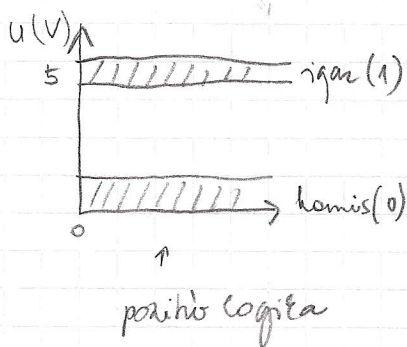 u(V)
5
igaz (1)
hamis (0)
0
↑
pozitív logika